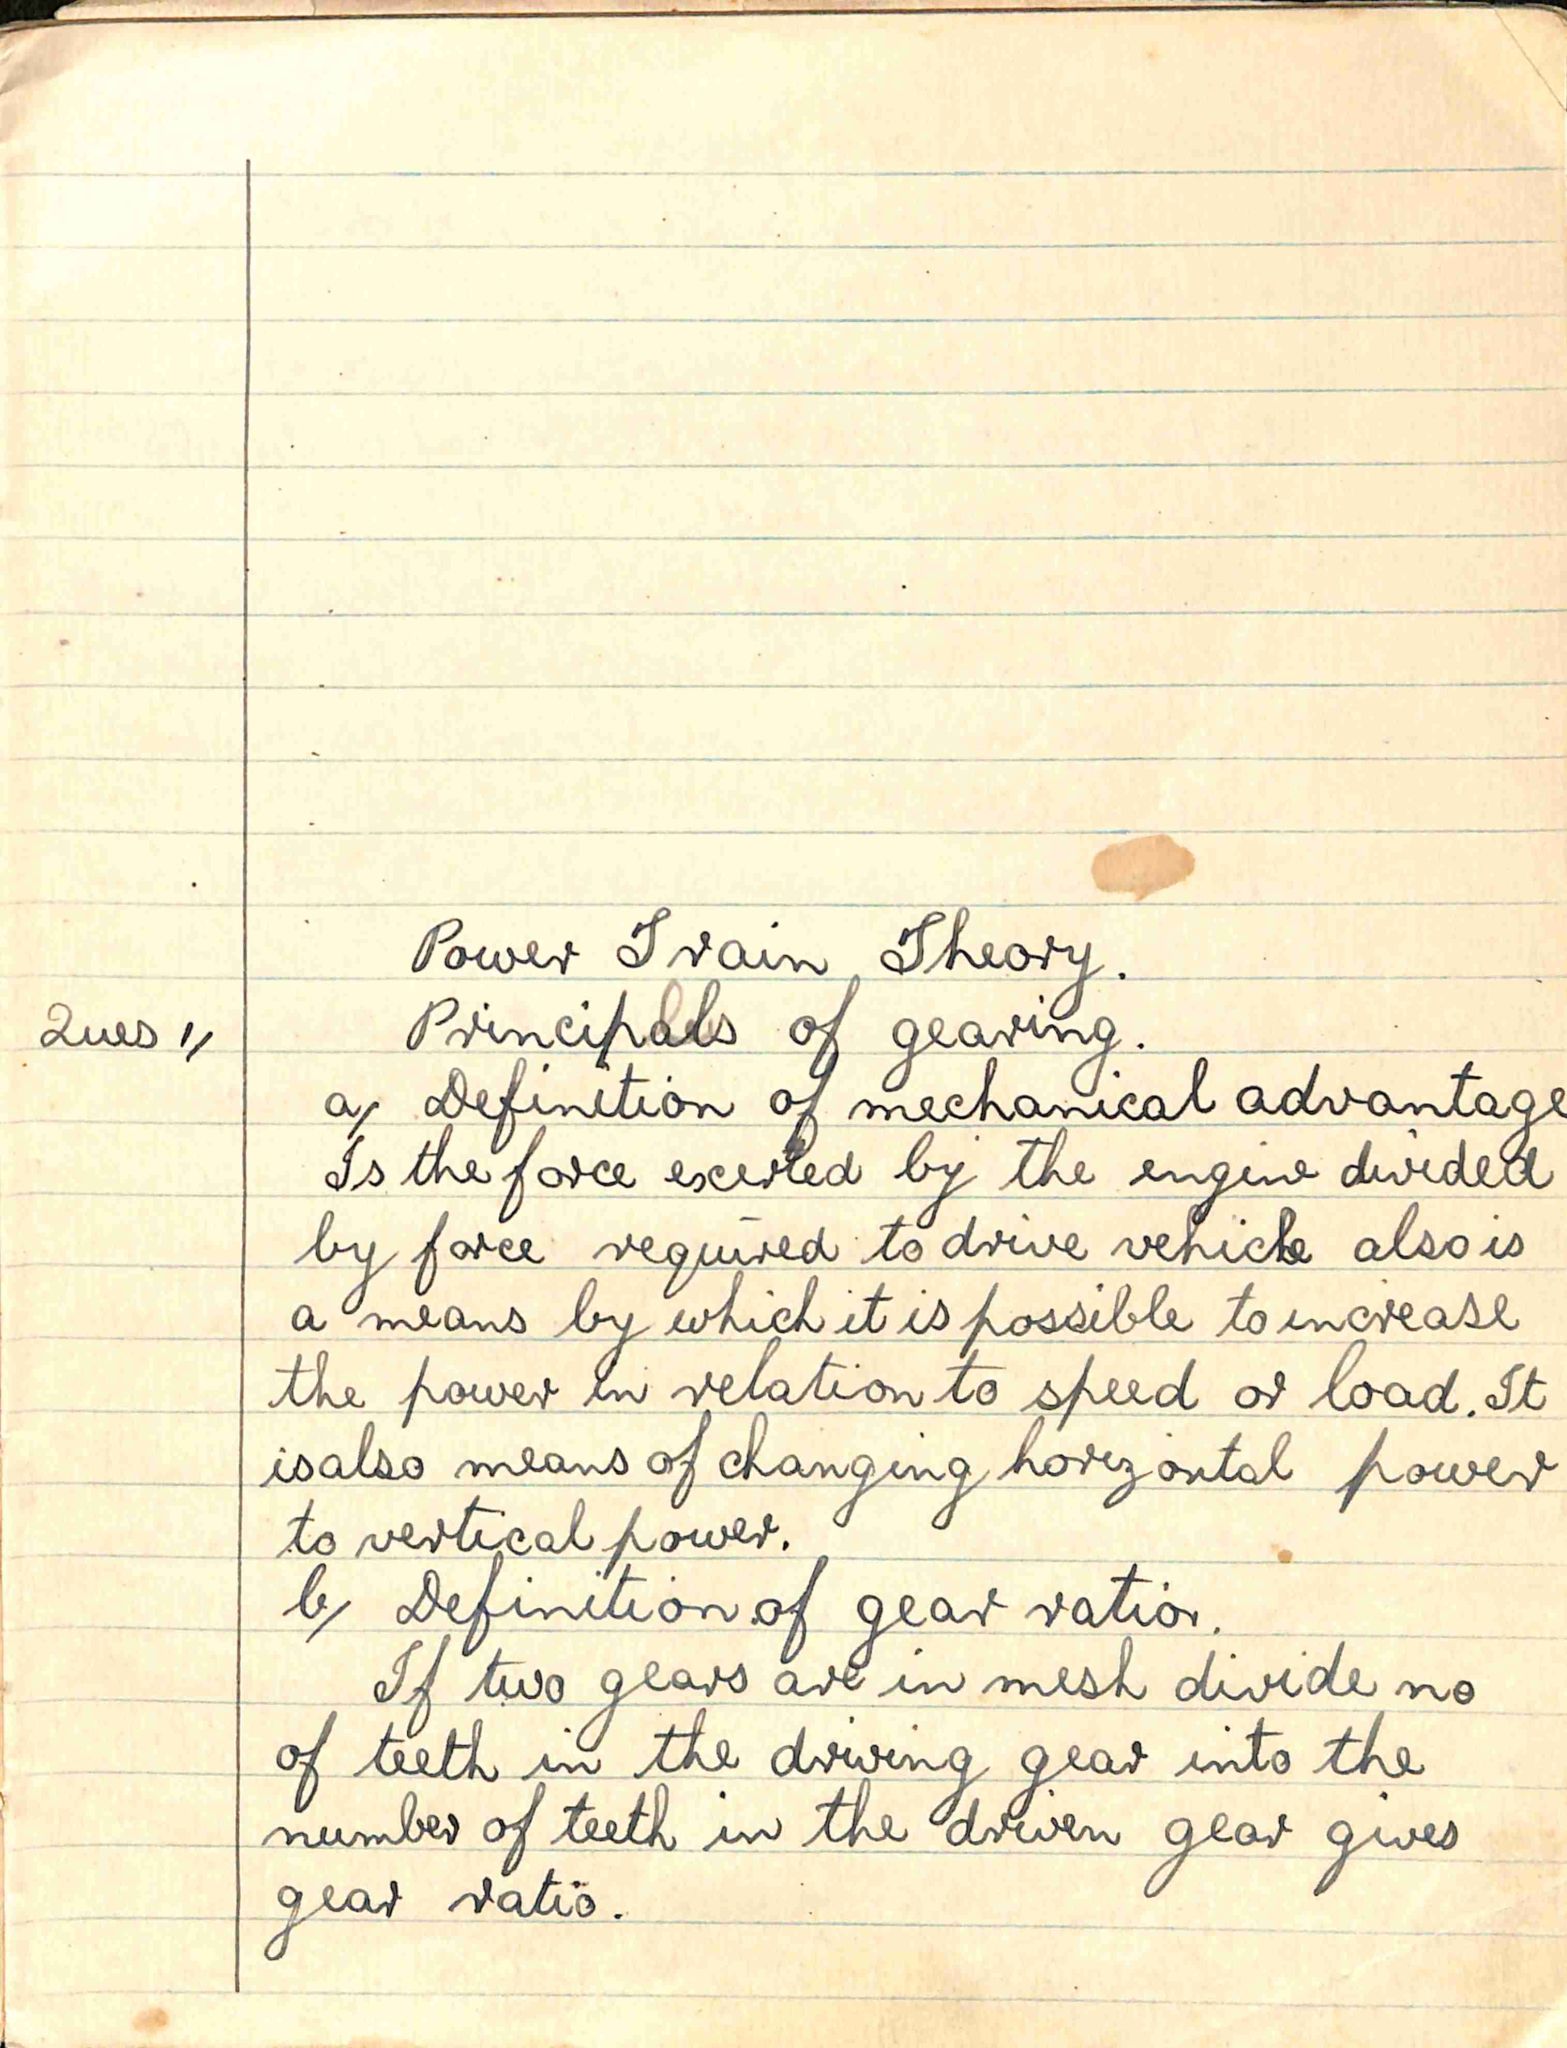 Power Train Theory.
Ques 1/ Principals of gearing.
a/ Definition of mechanical advantage
Is the force exerted by the engine divided
by force required to drive vehicle also is
a means by which it is possible to increase
the power in relation to speed or load. It
is also means of changing horizontal power
to vertical power.
b/ Definition of gear ratio.
If two gears are in mesh divide no
of teeth in the driving gear into the
number of teeth in the driven gear gives
gear ratio.